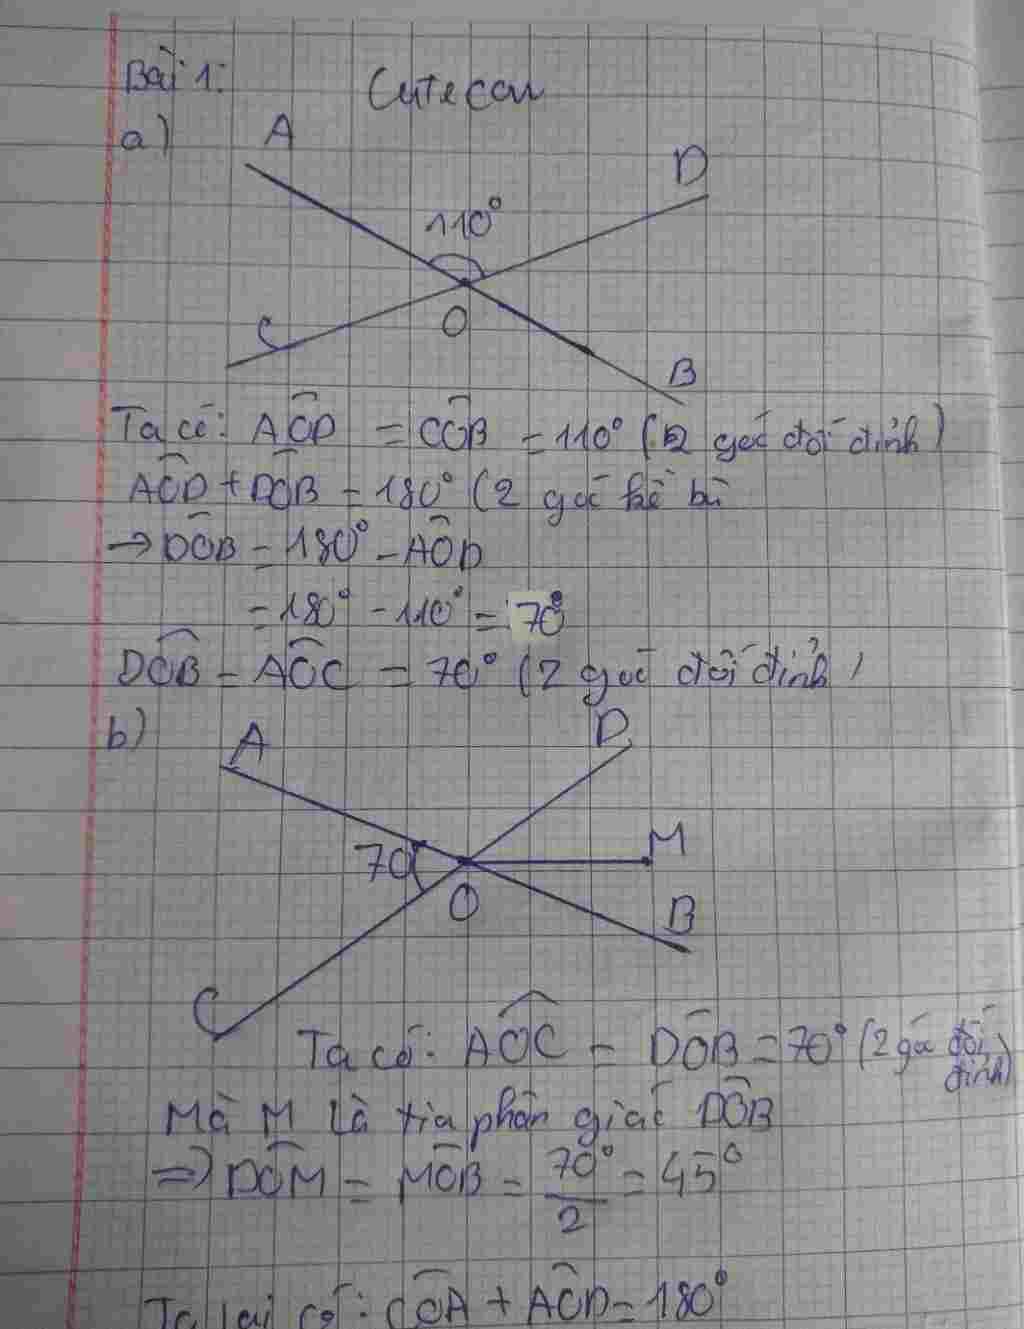 Bài 1: Cutecau
a)
A
D
110°
O
C
B
Ta có: AÔD = CÔB = 110° (2 góc đối đỉnh)
AÔD + DÔB = 180° (2 góc kề bù
→ DÔB = 180° - AÔD
= 180° - 110° = 70°
DÔB = AÔC = 70° (2 góc đối đỉnh)
b)
A
D
70
M
O
B
C
Ta có: AÔC = DÔB = 70° (2 góc đối
đỉnh)
Mà M là tia phân giác DÔB
=> DÔM = MÔB = 70°/2 = 45°
Ta lại có: CÔA + AÔD = 180°